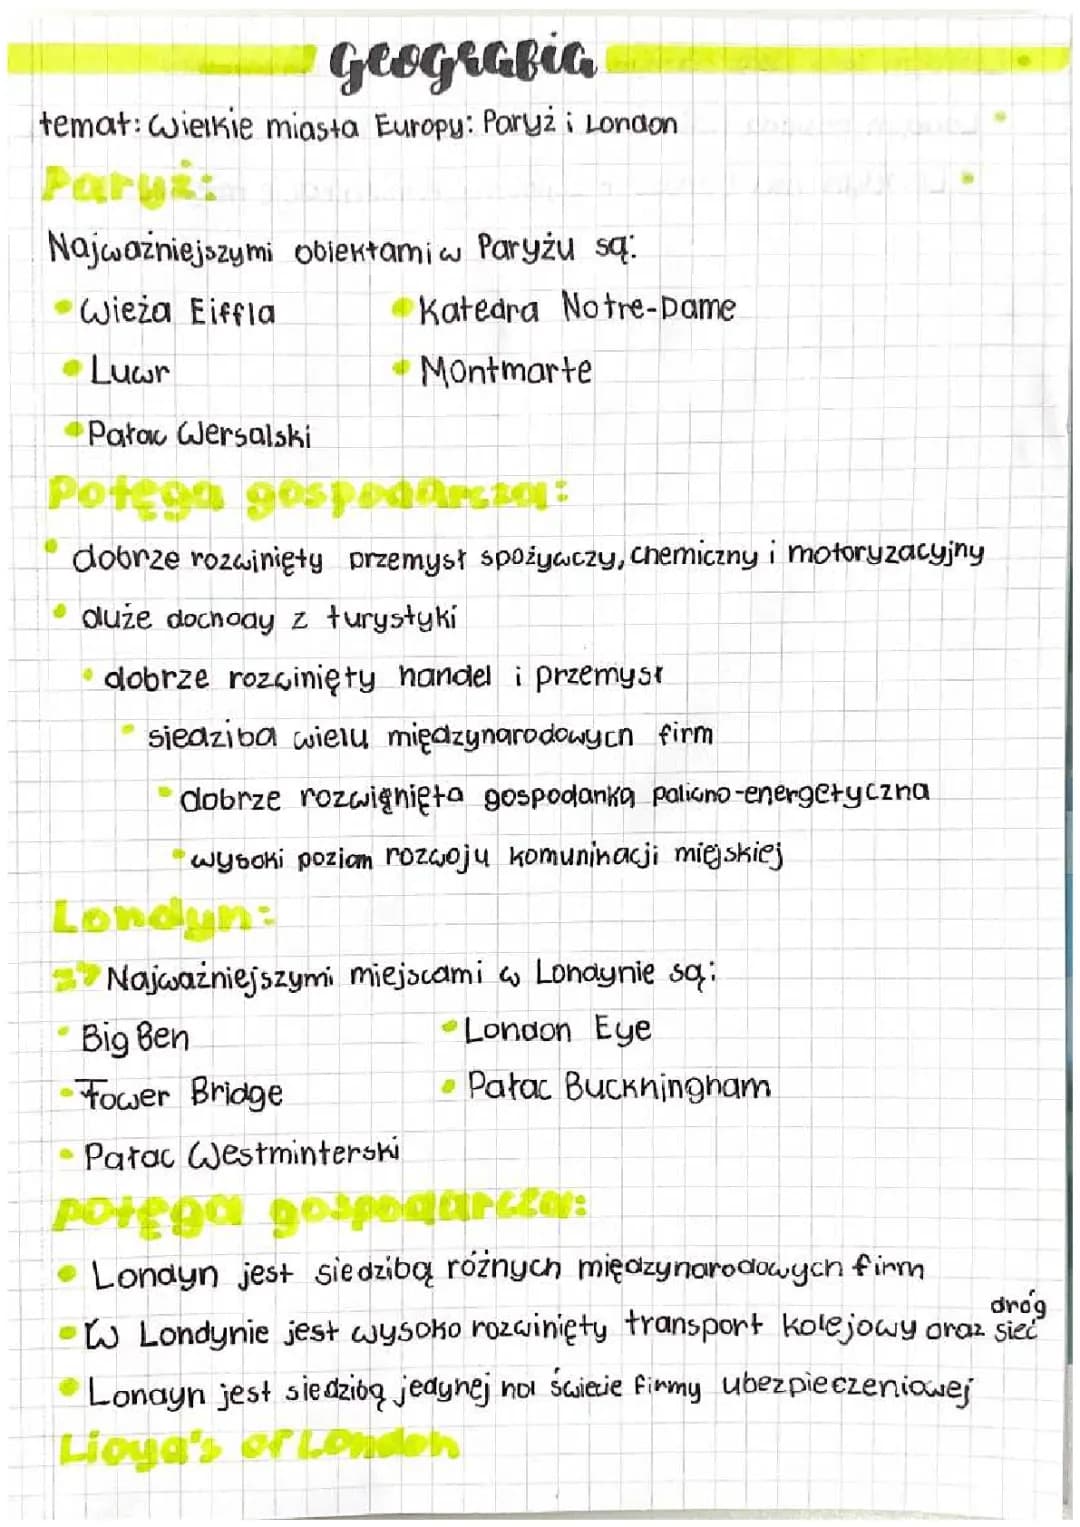 Geografia
temat: Wielkie miasta Europy: Paryż i London
Paryż:
Najważniejszymi obiektami w Paryżu są:
• Wieża Eiffla
• Katedra Notre-Dame
• Luwr
• Montmarte
• Pałac Wersalski
Potęga gospodarcza:
• dobrze rozwinięty przemysł spożywczy, chemiczny i motoryzacyjny
• duże dochody z turystyki
• dobrze rozwinięty handel i przemysł
• siedziba wielu międzynarodowych firm
• dobrze rozwięnięta gospodanka paliwno-energetyczna
• wysoki poziom rozwoju komunikacji miejskiej
Londyn:
Najważniejszymi miejscami w Londynie są:
• Big Ben
• London Eye
• Tower Bridge
• Pałac Buckningham
• Pałac Westminterski
potęga gospodarcza:
• Londyn jest siedzibą różnych międzynarodowych firm
• W Londynie jest wysoko rozwinięty transport kolejowy oraz sieć dróg
• Londyn jest siedzibą jedynej na świecie firmy ubezpieczeniowej
Lloyd's of London